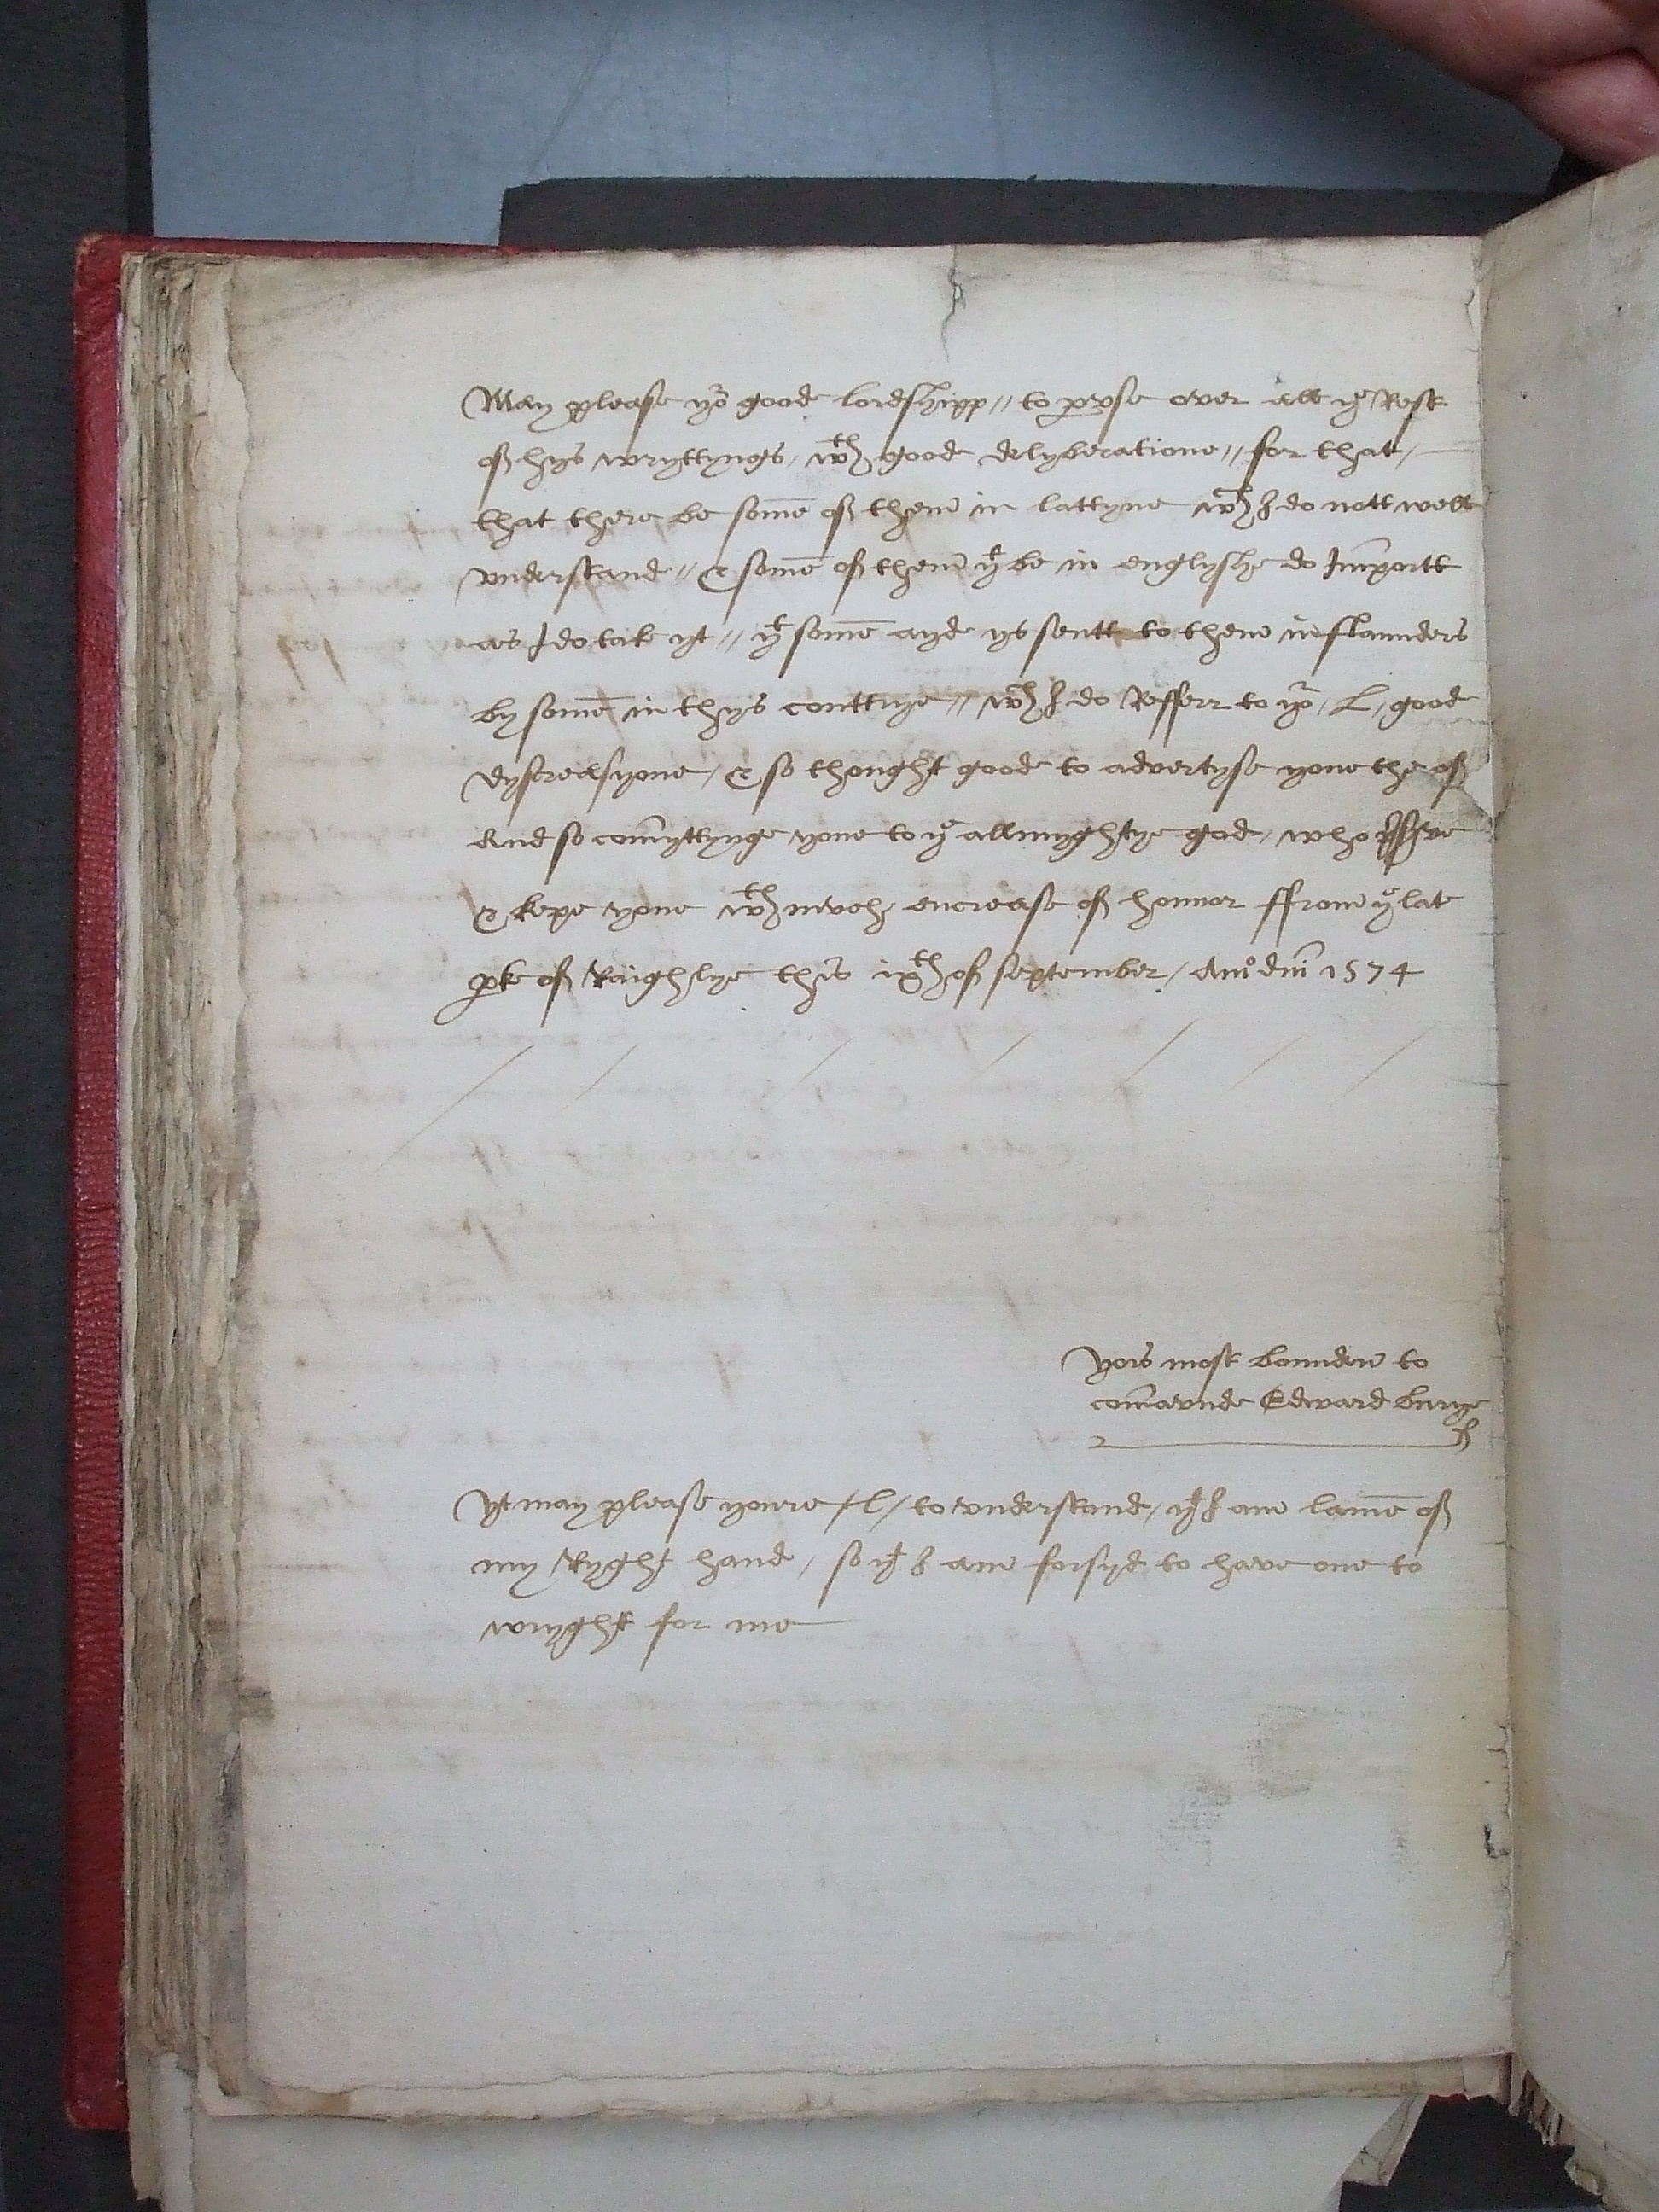 May please yor good lordshipp // to pvse over all ye Rest
off hys wryttyngs / wth good delyberatione // for that /
that there be some off them in lattyne wch I do nott well
vnderstand // & some off them yt be in englyshe do Importt
as I do tak yt // yt some ayde ys sentt to them in flaunders
by some in thys conttrye // wch I do Refferr to yor / L / good
dyscreasyone / & so thought good to advertyse youe the off
And so comyttynge youe to ye allmyghtye god / who psve
& kepe youe wth mvch encrease off honnor ffrom ye lat
pke off Raighlye this ixth off september / Ano dni 1574
Yors most bounden to
comavnde Edward burye
Yt may please youre / L / to vnderstand / yt I ame lame off
my Ryght hand / so yt I ame forsyd to have one to
wryght for me